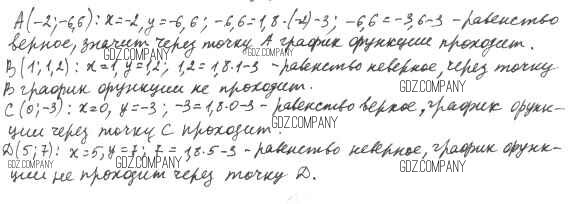 A(-2; -6,6): x=-2, y=-6,6; -6,6=1,8·(-2)-3; -6,6=-3,6-3 - равенство
верное, значит через точку A график функции проходит.
B(1; 1,2): x=1, y=1,2; 1,2=1,8·1-3 - равенство неверное, через точку
B график функции не проходит.
C(0; -3): x=0, y=-3; -3=1,8·0-3 - равенство верное, график функ-
ции через точку C проходит.
D(5; 7): x=5, y=7; 7=1,8·5-3 - равенство неверное, график функ-
ции не проходит через точку D.
GDZ.COMPANY
GDZ.COMPANY
GDZ.COMPANY
GDZ.COMPANY
GDZ.COMPANY
GDZ.COMPANY
GDZ.COMPANY
GDZ.COMPANY
GDZ.COMPANY